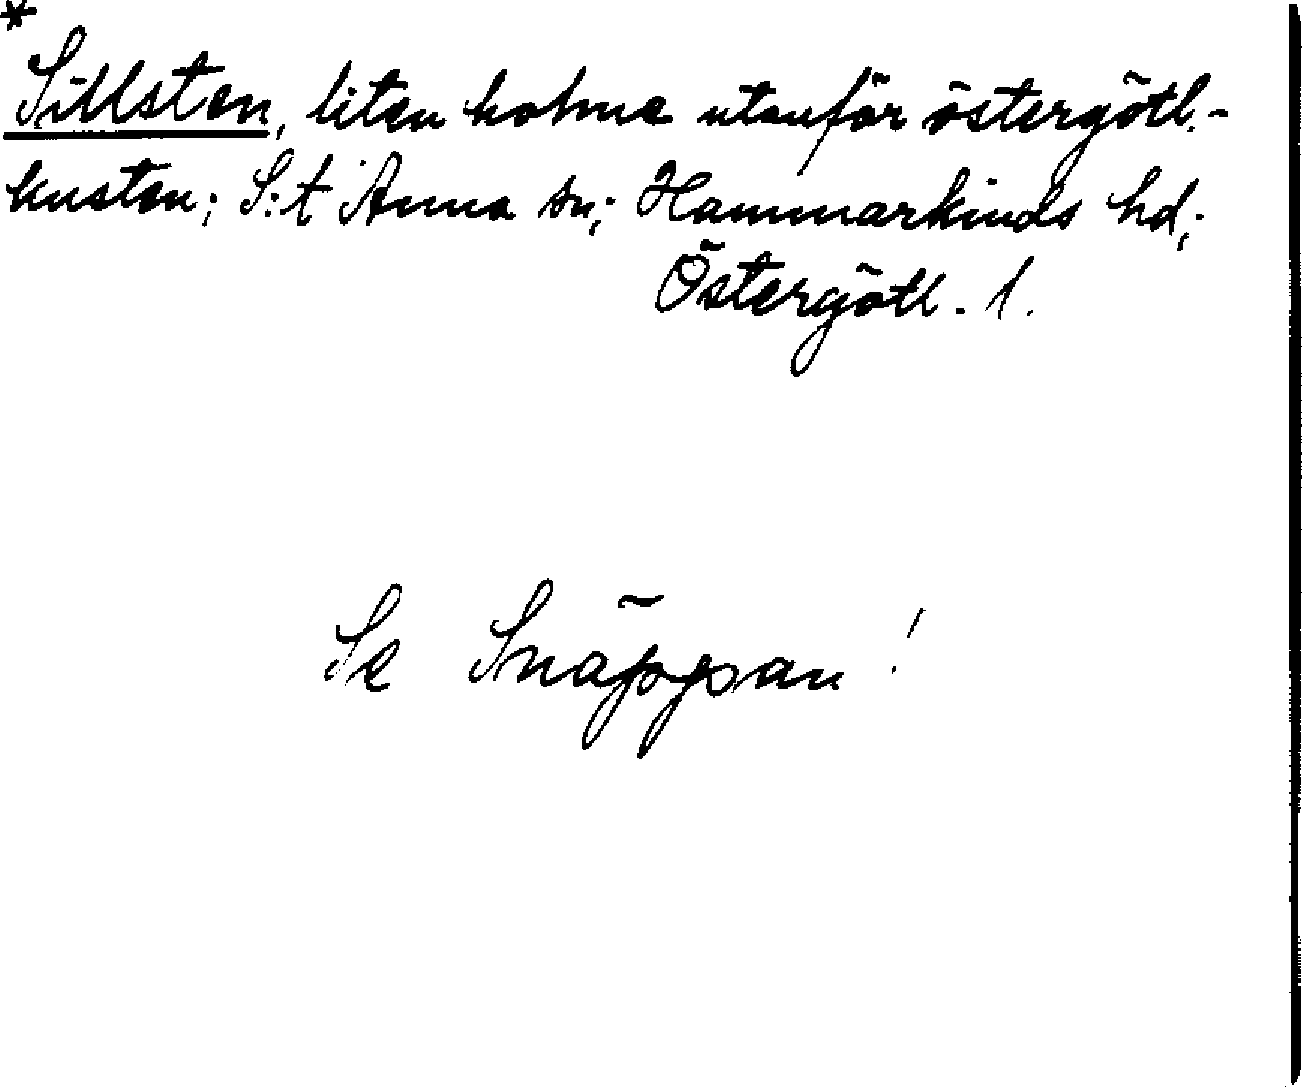 *
Sillsten, liten holme utanför östergötl.-
kusten; S:t Anna sn; Hammarkinds hd;
Östergötl. l.
Se Snäppan!